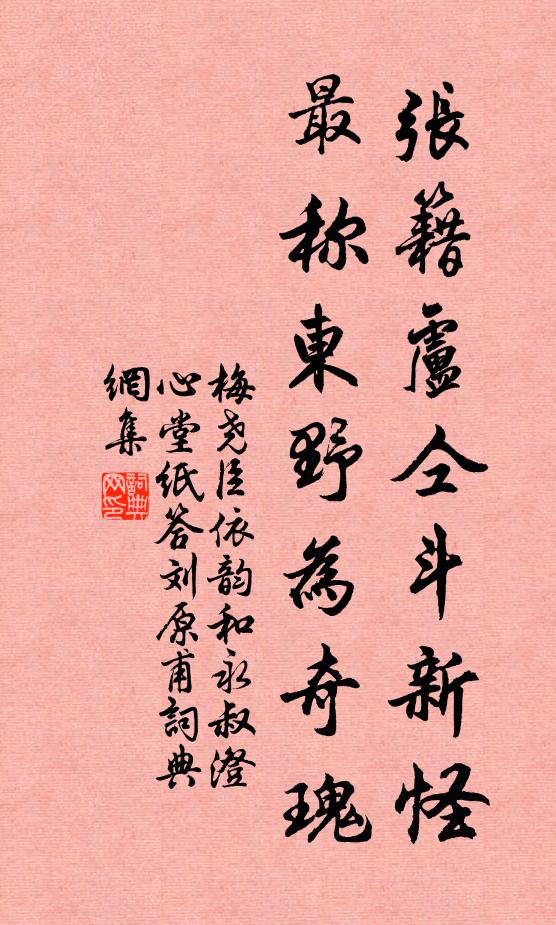 張籍盧仝斗新怪
最称東野為奇瑰
梅尧臣依韵和永叔澄
心堂纸答刘原甫詞典
網集
詞典網印